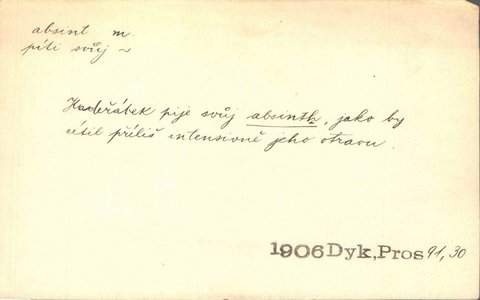 absint m.
píti svůj ~
Hackeřábek pije svůj absinth, jako by
cítil příliš intensivně jeho otravu.
1906 Dyk, Pros 91, 30